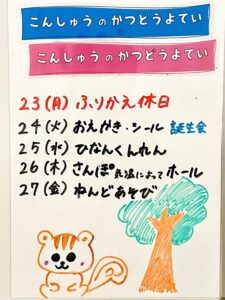 こんしゅうのかつどうよてい
こんしゅうのかつどうよてい
23(月)ふりかえ休日
24(火)おえかき・シール 誕生会
25(水)ひなんくんれん
26(木)さんぽ 気温によって ホール
27(金)ねんどあそび